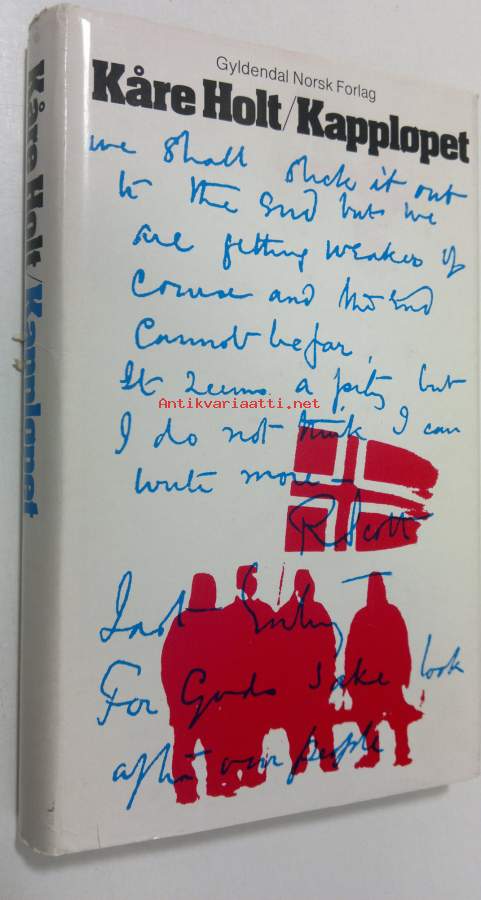 Gyldendal Norsk Forlag
Kåre Holt/Kappløpet
we shall stick it out
to the End but we
are getting weaker of
course and the End
cannot be far.
It seems a pity but
I do not think I can
write more –
R Scott
Last Entry
For Gods sake look
after our people
Kåre Holt/Kappløpet
Antikvariaatti.net